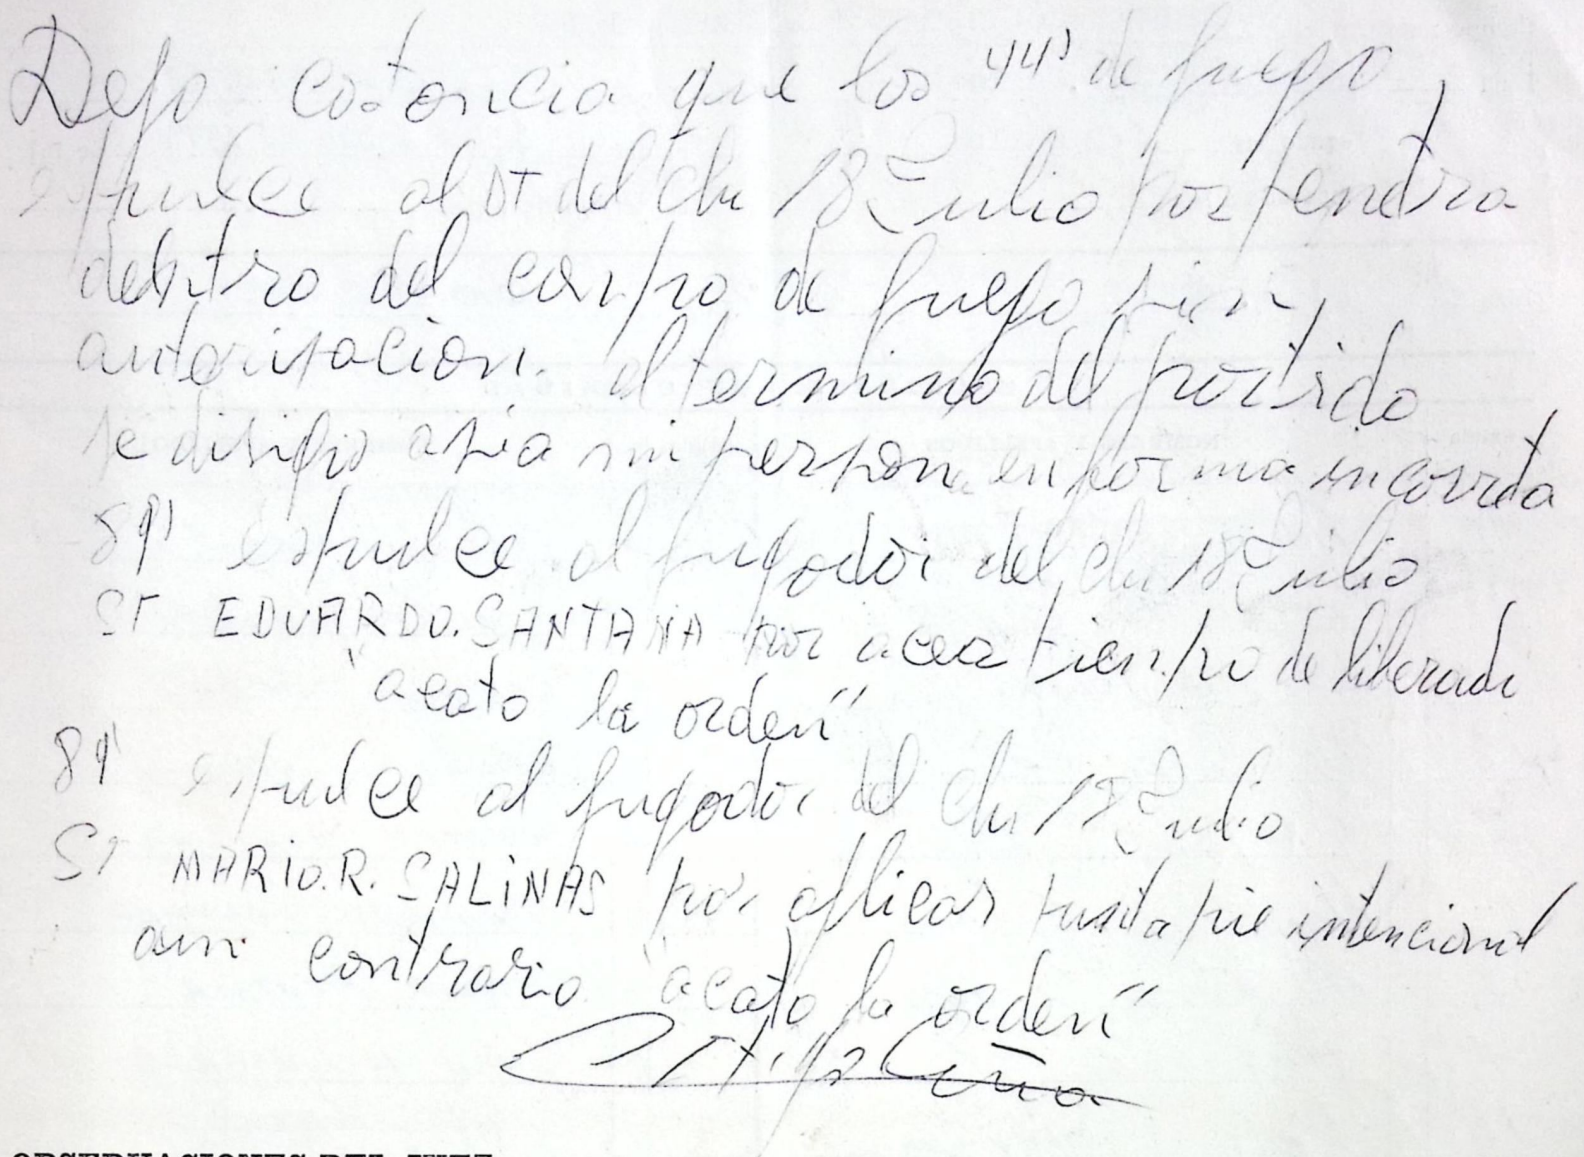 Dejo costancia que los 44' de fuego
espulce al DT del clu 18 Julio por entra
dentro del campo de fuego sin
autorisacion. al termino del partido
se dirifio asia mi persona en forma incorreta
89' espulce al fugador del clu 18 Julio
Sr EDUARDO. SANTANA por acer tiempo de liberado
"acato la orden"
89' espulce al fugador del clu 18 Julio
Sr MARIO. R. SALINAS por aplicar punta pie intencional
aun contrario "acato la orden"